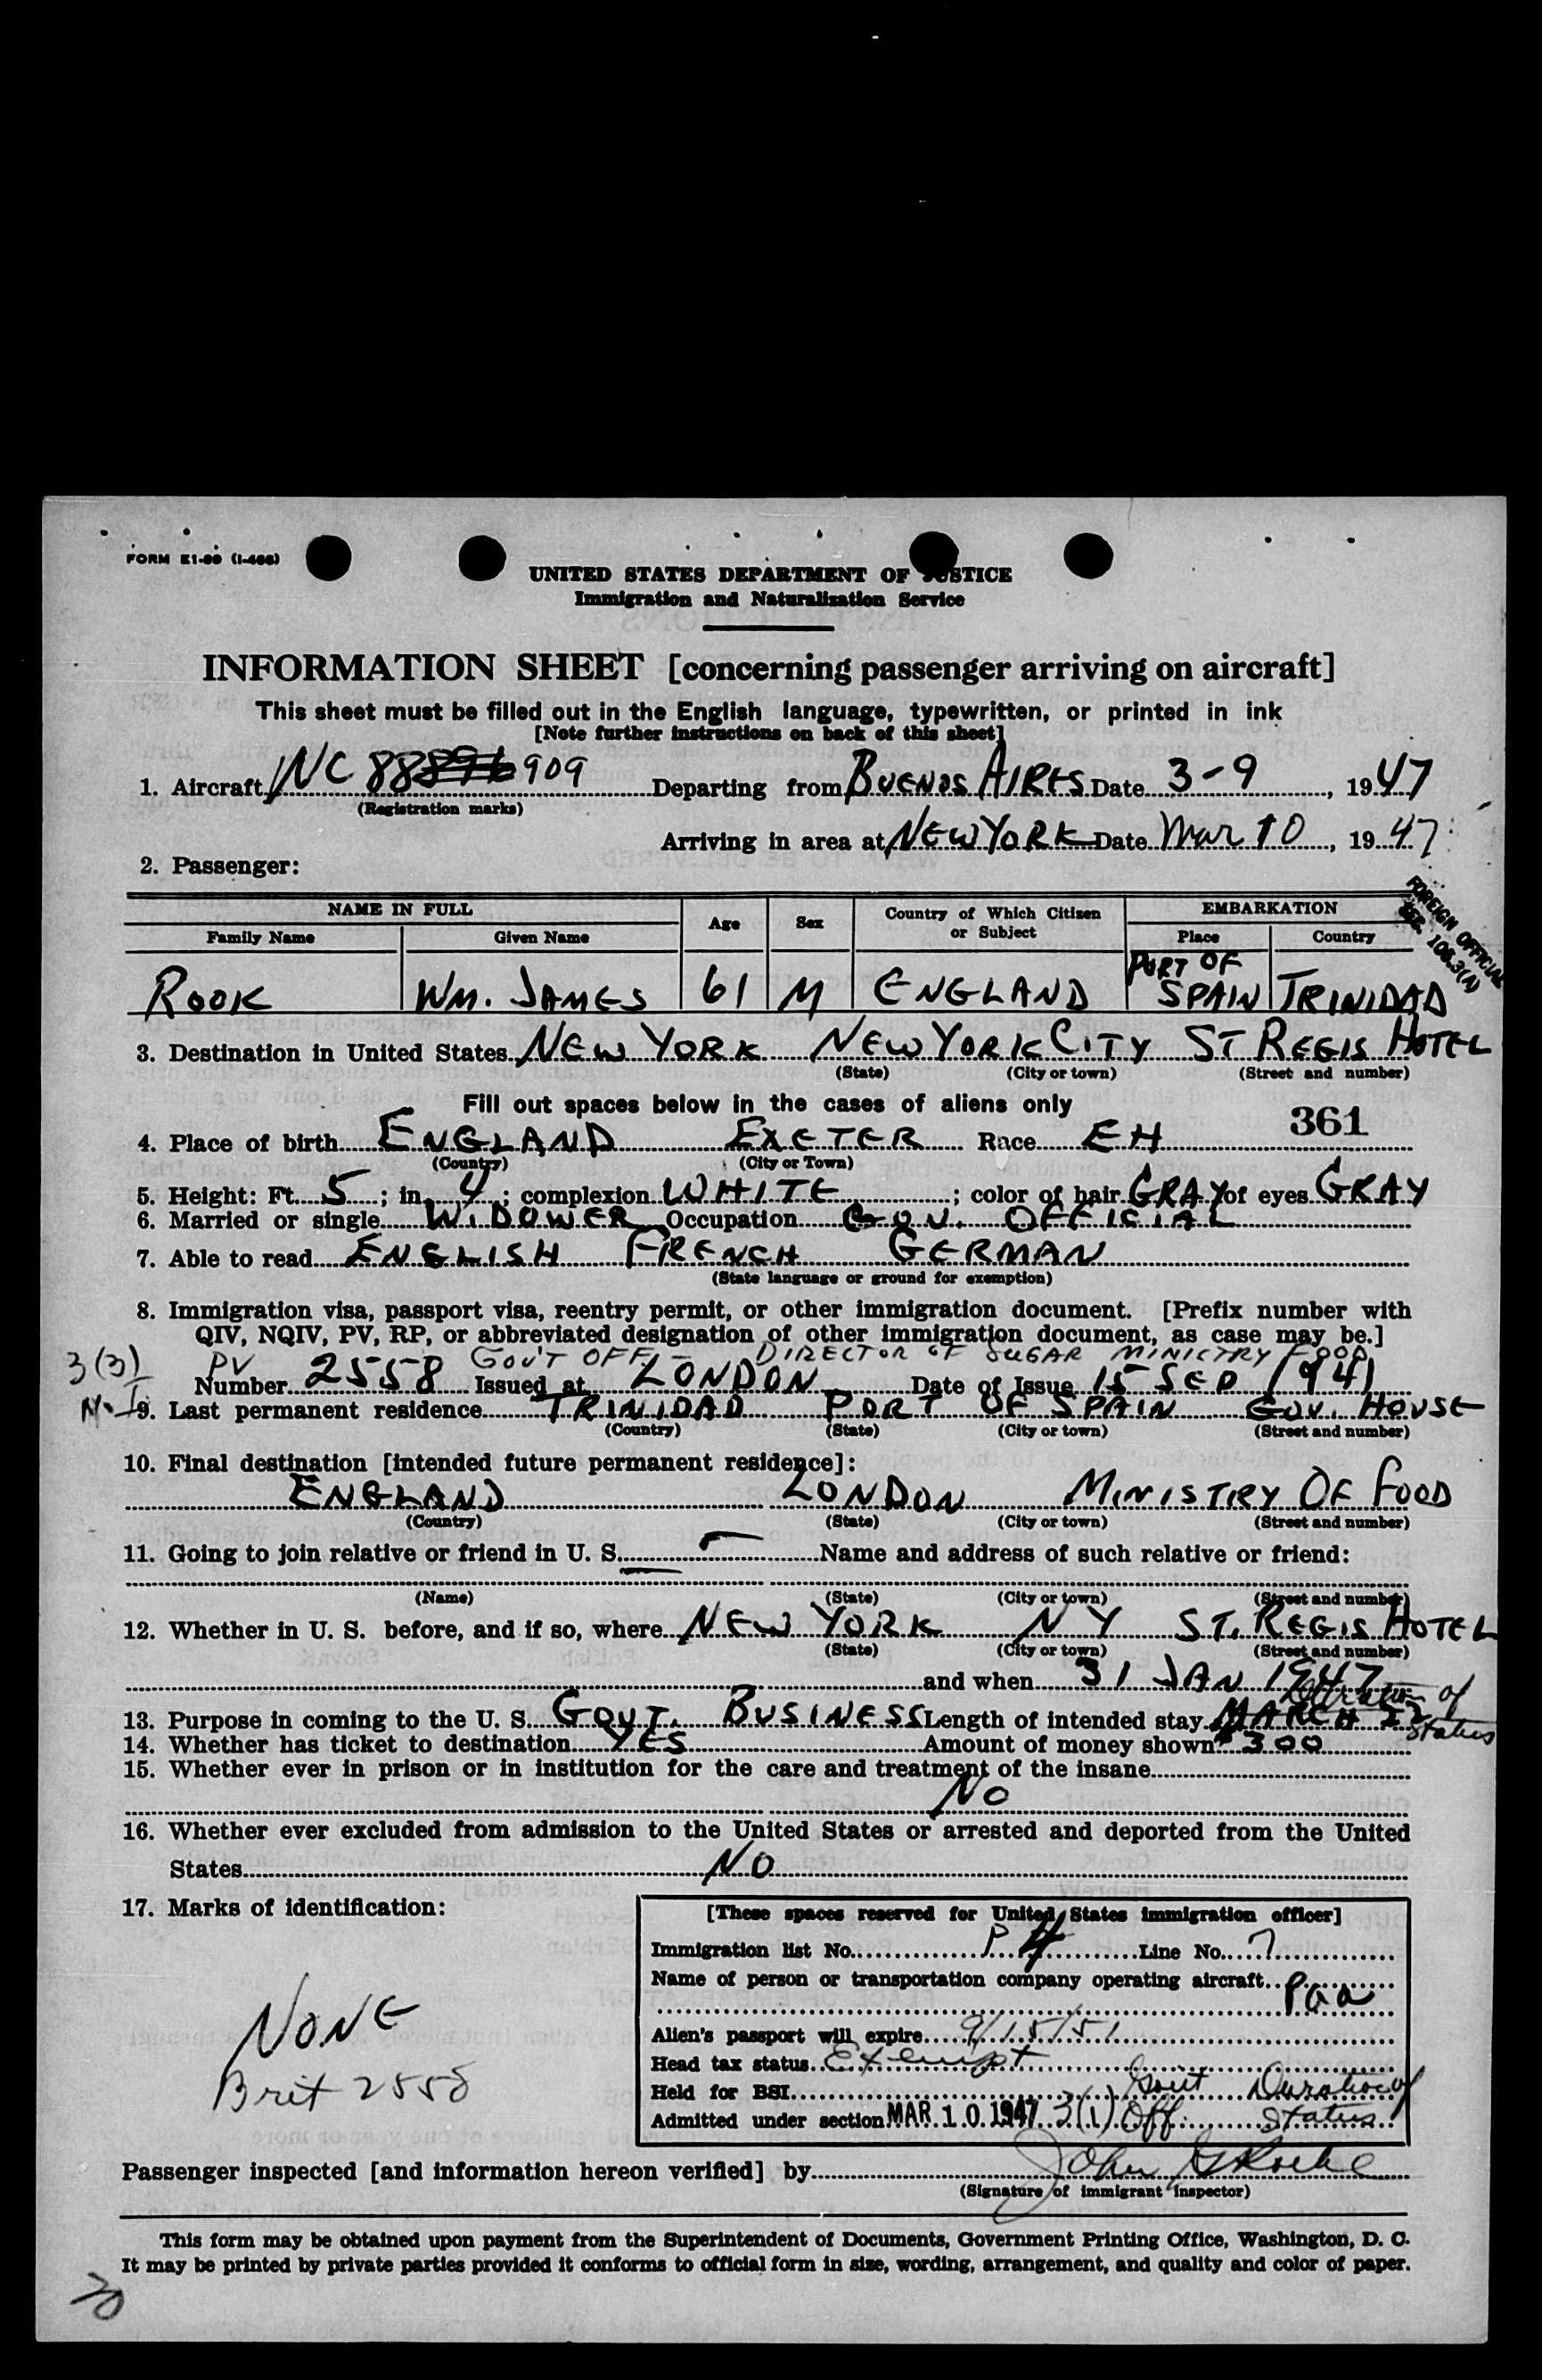 FORM E1-99 (I-466)
UNITED STATES DEPARTMENT OF JUSTICE
Immigration and Naturalization Service
INFORMATION SHEET [concerning passenger arriving on aircraft]
This sheet must be filled out in the English language, typewritten, or printed in ink
[Note further instructions on back of this sheet]
1. Aircraft NC 88 909 Departing from BUENOS AIRES Date 3-9, 1947
(Registration marks)
Arriving in area at NEW YORK Date Mar 10, 1947
2. Passenger:
FOREIGN OFFICIAL
SEC. 108.3(A)
NAME IN FULL Age Sex Country of Which Citizen or Subject EMBARKATION
Family Name Given Name Place Country
ROOK WM. JAMES 61 M ENGLAND PORT OF SPAIN TRINIDAD
3. Destination in United States NEW YORK NEW YORK CITY ST REGIS HOTEL
(State) (City or town) (Street and number)
Fill out spaces below in the cases of aliens only
361
4. Place of birth ENGLAND EXETER Race EH
(Country) (City or Town)
5. Height: Ft. 5; in. 4; complexion WHITE; color of hair GRAY of eyes GRAY
6. Married or single WIDOWER Occupation GOV. OFFICIAL
7. Able to read ENGLISH FRENCH GERMAN
(State language or ground for exemption)
8. Immigration visa, passport visa, reentry permit, or other immigration document. [Prefix number with
QIV, NQIV, PV, RP, or abbreviated designation of other immigration document, as case may be.]
3(3) PV GOV'T OFF - DIRECTOR OF SUGAR MINICTRY FOOD
Number 2558 Issued at LONDON Date of Issue 15 SEP 1941
9. Last permanent residence TRINIDAD PORT OF SPAIN GOV. HOUSE
(Country) (State) (City or town) (Street and number)
10. Final destination [intended future permanent residence]:
ENGLAND LONDON MINISTRY OF FOOD
(Country) (State) (City or town) (Street and number)
11. Going to join relative or friend in U. S. — Name and address of such relative or friend:
(Name) (State) (City or town) (Street and number)
12. Whether in U. S. before, and if so, where NEW YORK N Y ST. REGIS HOTEL
(State) (City or town) (Street and number)
and when 31 JAN 1947
Duration of status
13. Purpose in coming to the U. S. GOVT. BUSINESS Length of intended stay MARCH 22
14. Whether has ticket to destination YES Amount of money shown $300
15. Whether ever in prison or in institution for the care and treatment of the insane
NO
16. Whether ever excluded from admission to the United States or arrested and deported from the United
States NO
17. Marks of identification:
NONE
Brit 2558
[These spaces reserved for United States immigration officer]
Immigration list No. P 4 Line No. 7
Name of person or transportation company operating aircraft Paa
Alien's passport will expire 9/15/51
Head tax status Exempt
Held for BSI Govt Duration of
Admitted under section MAR 10 1947 3(1) Off. Status
Passenger inspected [and information hereon verified] by John
(Signature of immigrant inspector)
This form may be obtained upon payment from the Superintendent of Documents, Government Printing Office, Washington, D. C.
It may be printed by private parties provided it conforms to official form in size, wording, arrangement, and quality and color of paper.